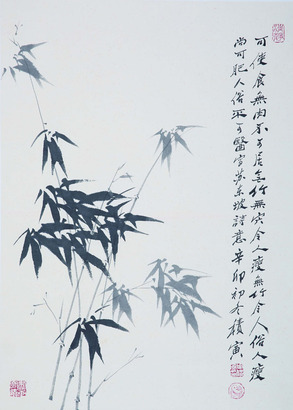 可使食無肉不可居無竹無宍令人瘦無竹令人俗人瘦
尚可肥人俗不可醫寫蘇東坡詩意辛卯初冬積寅